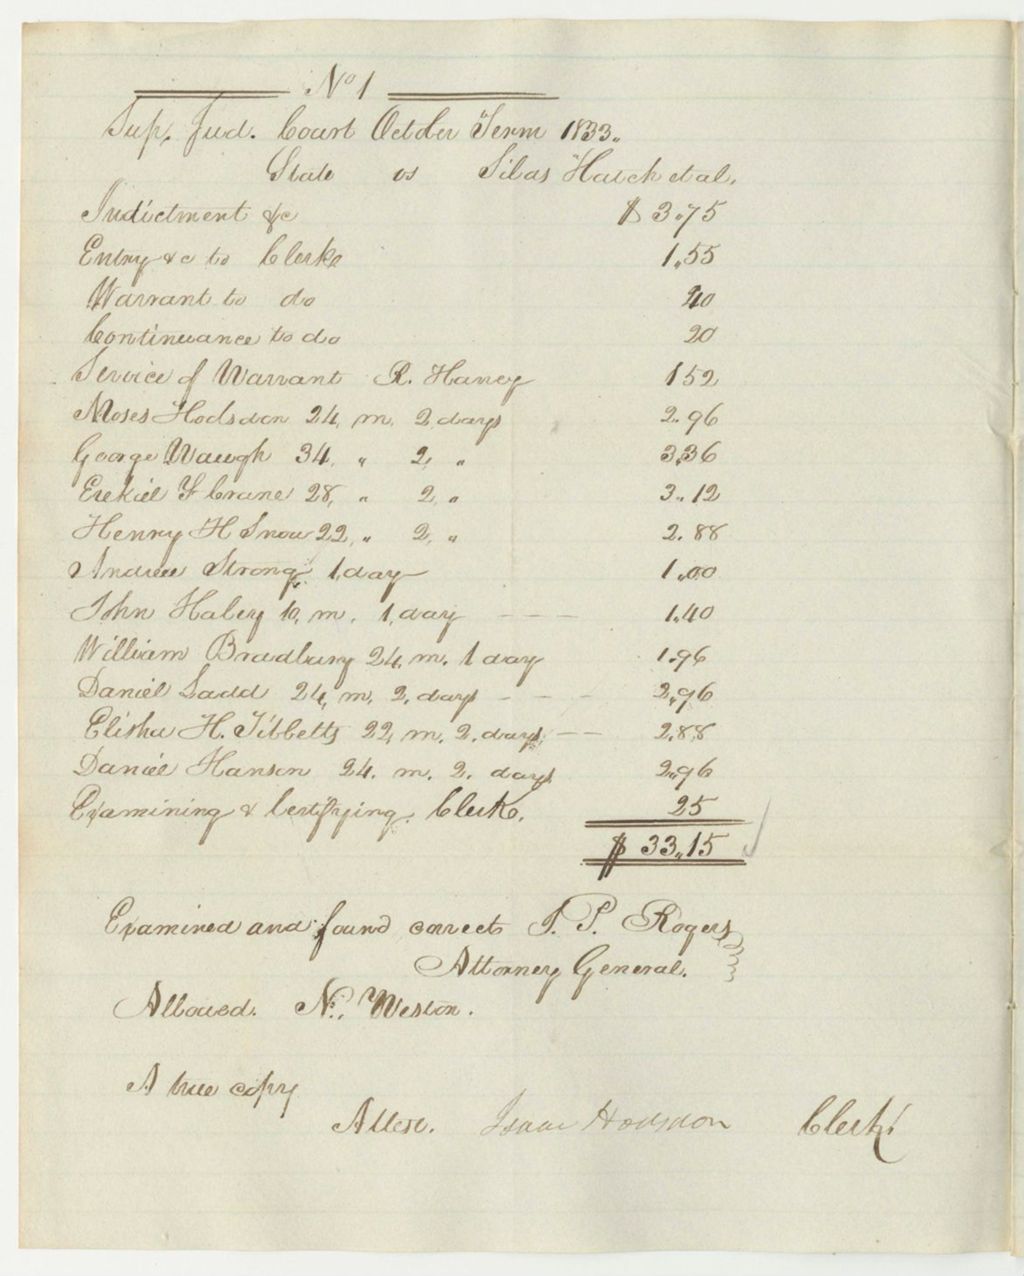 No 1
Sup. Jud. Court October Term 1833.
State vs Silas Hatch et al.
Indictment &c $ 3.75
Entry &c to Clerk 1.55
Warrant to do 40
Continuance to do 20
Service of Warrant R. Haney 152
Moses Hodsdon 24, m. 2 days 2.96
George Waugh 34, " 2, " 3.36
Ezekiel F Crane 28, " 2 " 3.12
Henry H Snow 22, " 2, " 2.88
Andrew Strong 1, day 1.00
John Haley 10, m. 1, day 1.40
William Bradbury 24, m. 1 day 1.96
Daniel Ladd 24, m, 2, days 2.96
Elisha H. Tibbetts 22, m. 2. days 2.88
Daniel Hanson 24. m. 2. days 2.96
Examining & Certifying. Clerk. 25
$ 33.15
Examined and found correct J. P. Rogers
Attorney General.
Allowed. N. Weston.
A true copy
Attest. Isaac Hodsdon Clerk